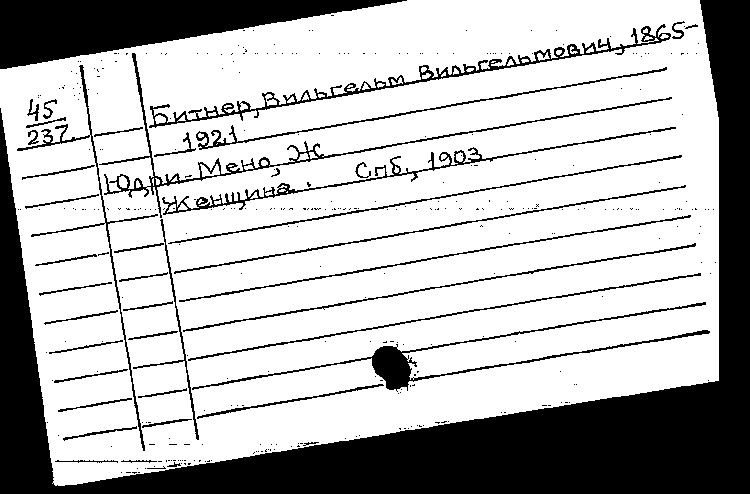 45
237.
Битнер, Вильгельм Вильгельмович, 1865-
1921
Юдри-Мено, Ж
Женщина. Спб., 1903.